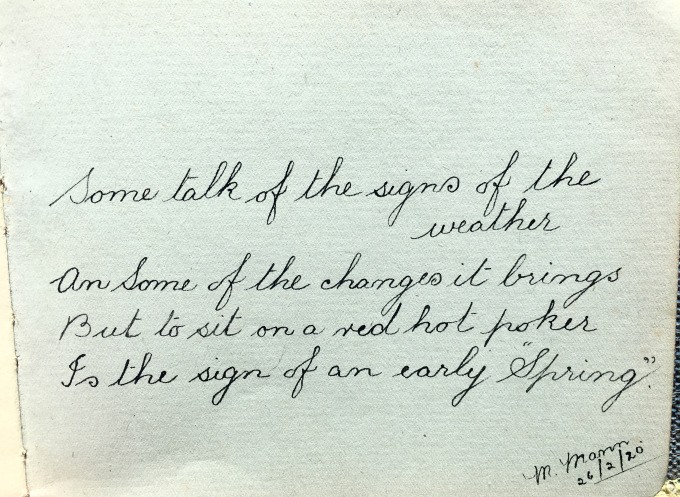 Some talk of the signs of the
weather
An Some of the changes it brings
But to sit on a red hot poker
Is the sign of an early "Spring".
M. Mann
26/2/20.